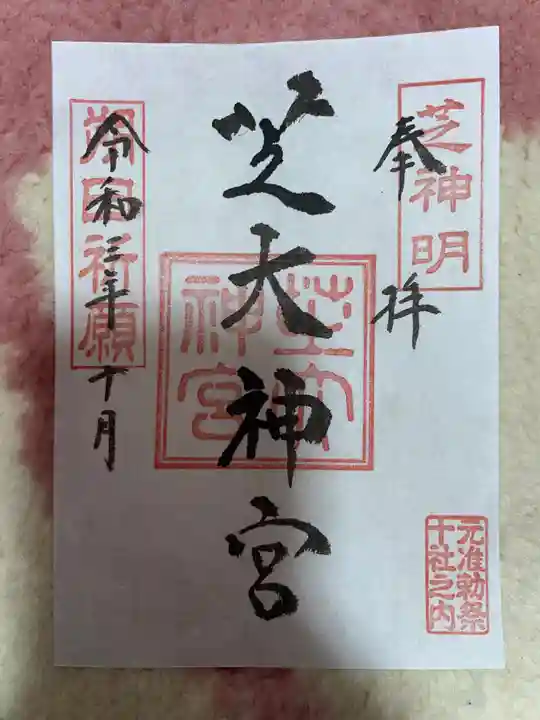 芝神明
奉拝
元准勅祭
十社之内
芝大神宮
芝大
神宮
朔日祈願
令和三年十月